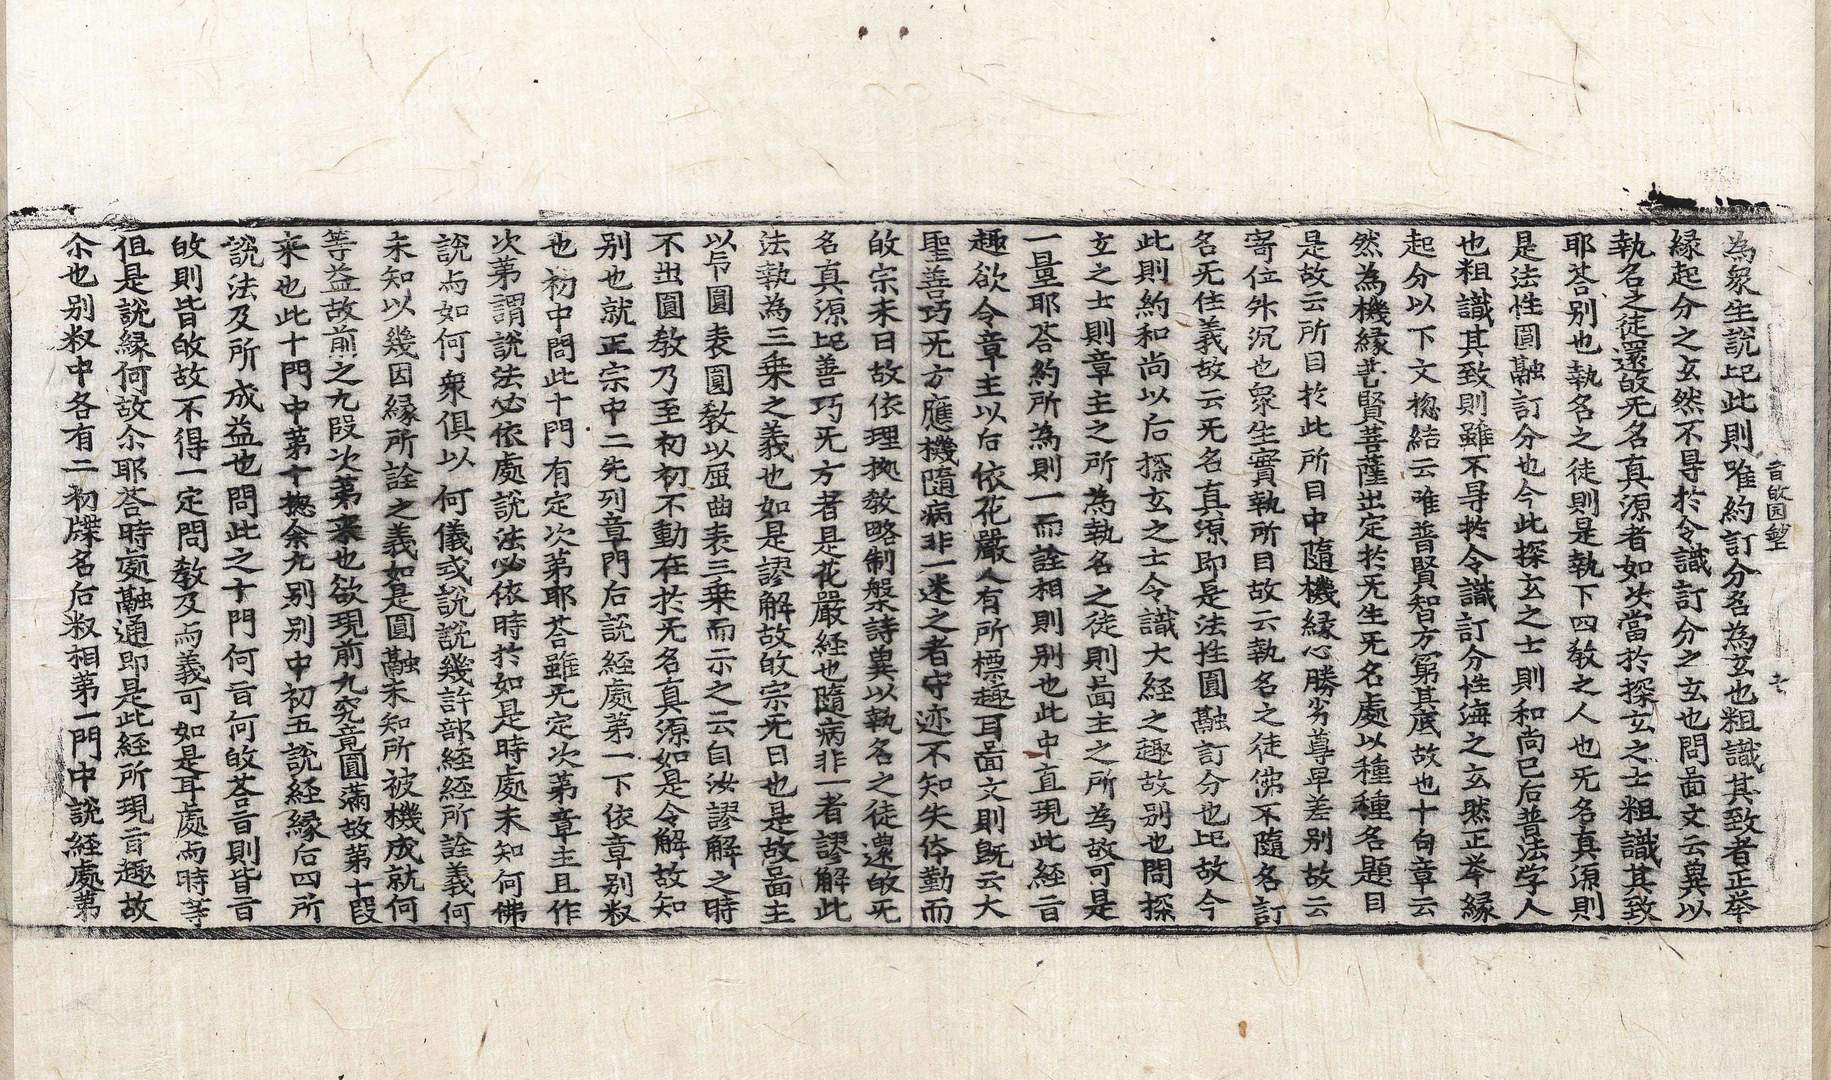 為衆生說込此則唯約訂分名為玄也粗識其致者正举
緣起分之玄然不导扵令識訂分之玄也問畐文云兾以
執名之徒還皈无名真源者如次當扵探玄之士粗識其致
耶荅別也執名之徒則是執下四教之人也无名真源則
是法性圓融訂分也今此探玄之士則和尚已后普法学人
也粗識其致則雖不导扵令識訂分性海之玄然正举緣
起分以下文捴結云唯普賢智方窮其底故也十句章云
然為機緣普賢菩薩出定扵无生无名處以種種名題目
是故云所目扵此所目中隨機緣心勝劣尊卑差別故云
寄位外沉也衆生實執所目故云執名之徒佛不隨名訂
名无住義故云无名真源即是法性圓融訂分也込故今
此則約和尚以后探玄之士令識大経之趣故別也問探
玄之士則章主之所為執名之徒則畐主之所為故可是
一量耶荅約所為則一而詮相則別也此中直現此経亯
趣欲令章主以后依花嚴人有所標趣耳畐文則既云大
聖善巧无方應機隨病非一迷之者守迹不知失体勤而
皈宗未日故依理㨿教略制槃詩兾以執名之徒還皈无
名真源込善巧无方者是花嚴経也隨病非一者謬解此
法執為三乗之義也如是謬解故皈宗无日也是故畐主
以帋圓表圓教以屈曲表三乗而示之云自汝謬解之時
不出圓教乃至初初不動在扵无名真源如是令解故知
別也就正宗中二先列章門后說経處第一下依章別叙
也初中問此十門有定次第耶荅雖无定次第章主且作
次第謂說法必依處說法必依時扵如是時處未知何佛
說与如何衆俱以何儀或說說幾許部経経所詮義何
未知以幾因緣所詮之義如是圓融未知所被機成就何
等益故前之九段次第来也欲現前九究竟圓滿故第十段
来也此十門中第十捴余九別別中初五說経緣后四所
說法及所成益也問此之十門何亯何皈荅亯則皆亯
皈則皆皈故不得一定問教及与義可如是耳處与時等
但是說緣何故尒耶荅時處融通即是此経所現亯趣故
尒也別叙中各有二初牒名后叙相第一門中說経處第
亯皈因鈔